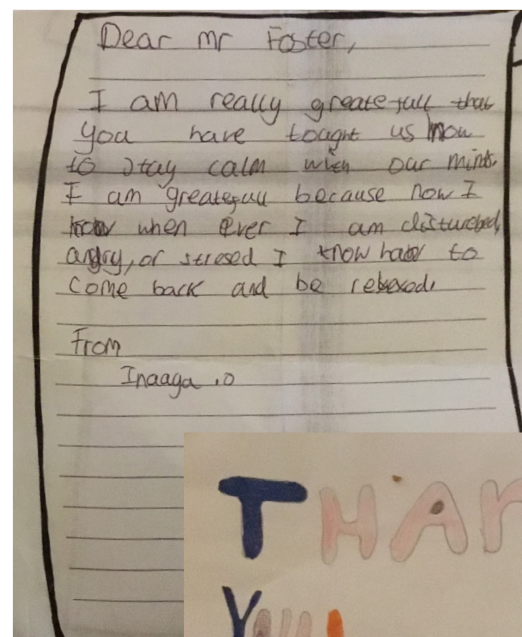 Dear Mr Foster,
I am really greatefull that
you have tought us how
to stay calm with our minds.
I am greatefull because now I
know when ever I am disturbed,
angry, or stresed I know how to
come back and be relaxed.
From
Inaaga .O
THAN
YOU